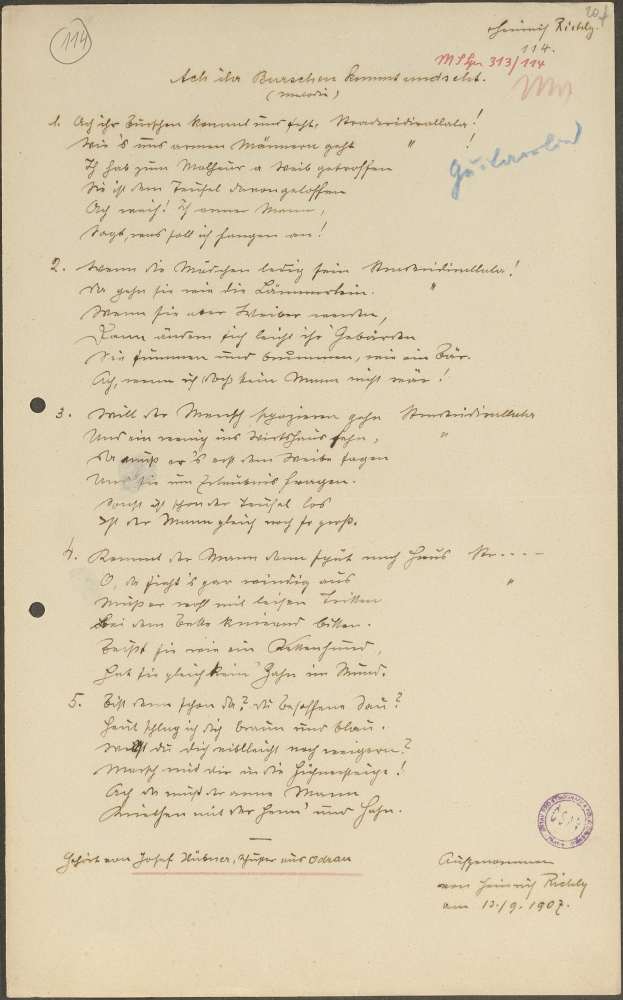 114
Heinrich Richly.
114.
313/114
Ach ihr Burschen kommt und seht.
(Melodie)
1. Ach ihr Burschen kommt und seht, !
Wie's uns armen Männern geht " !
Ich hab zum Malheur a Weib getroffen
Sie ist dem Teufel davongeloffen
Ach weih! Ich armer Mann,
Sagt, was soll ich fangen an!
2. Wenn die Mädchen ledig sein !
Da gehn sie wie die Lämmerlein. "
Wenn sie aber Weiber werden,
Dann ändern sich leicht ihr' Gebärden
Sie summen und brummen, wie ein Bär.
Ach, wenn ich doch kein Mann nicht wär!
3. Will der Mensch spazieren gehn
Und ein wenig ins Wirtshaus sehn, "
Da muß er's erst dem Weibe sagen
Und sie um Erlaubnis fragen.
Sonst ist schon der Teufel los
Ist der Mann gleich noch so groß.
4. Kommt der Mann dann spät nach Haus
O, da sieht's gar windig aus "
Muß er mit leisen Tritten
Bei dem Bette knieend bitten.
Beißt sie wie ein Kettenhund,
Hat sie gleich kein' Zahn im Mund.
5. Bist denn schon da? du besoffene Sau?
Heut schlag ich dich braun und blau.
Willst du dich vielleicht noch weigern?
Marsch mit dir in die Hühnersteige!
Ach da muß der arme Mann
mit der Henn' und Hahn.
Gehört von Josef Hübner, aus Odrau
Aufgenommen
von Heinrich Richly
am 13./9. 1907.